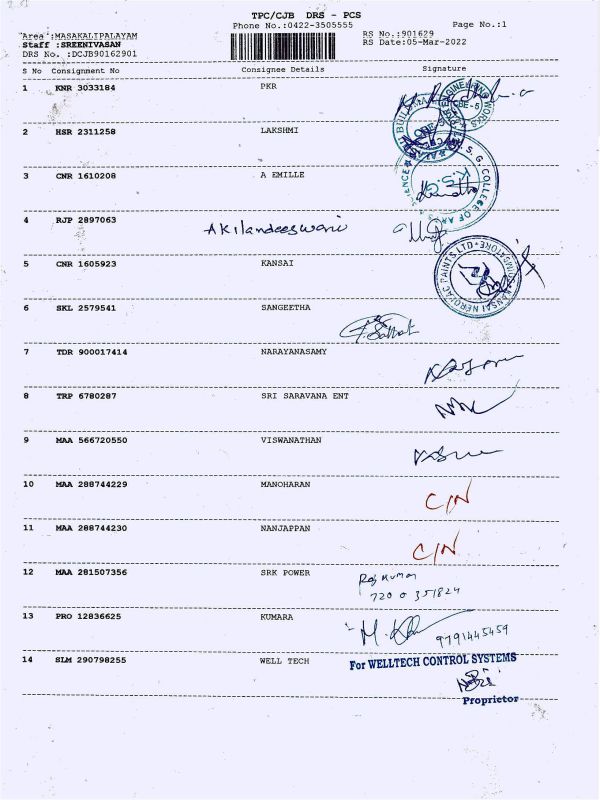 TPC/CJB DRS - PCS
Phone No.:0422-3505555 Page No.:1
Area :MASAKALIPALAYAM RS No.:901629
Staff :SREENIVASAN RS Date:05-Mar-2022
DRS No. :DCJB90162901
S No Consignment No Consignee Details Signature
1 KNR 3033184 PKR
2 HSR 2311258 LAKSHMI
3 CNR 1610208 A EMILLE
4 RJP 2897063 Akilandeeswari
5 CNR 1605923 KANSAI
6 SKL 2579541 SANGEETHA
7 TDR 900017414 NARAYANASAMY
8 TRP 6780287 SRI SARAVANA ENT
9 MAA 566720550 VISWANATHAN
10 MAA 288744229 MANOHARAN C/N
11 MAA 288744230 NANJAPPAN C/N
12 MAA 281507356 SRK POWER Raj Kumar
720 0 351824
13 PRO 12836625 KUMARA
9791445459
14 SLM 290798255 WELL TECH For WELLTECH CONTROL SYSTEMS
Proprietor